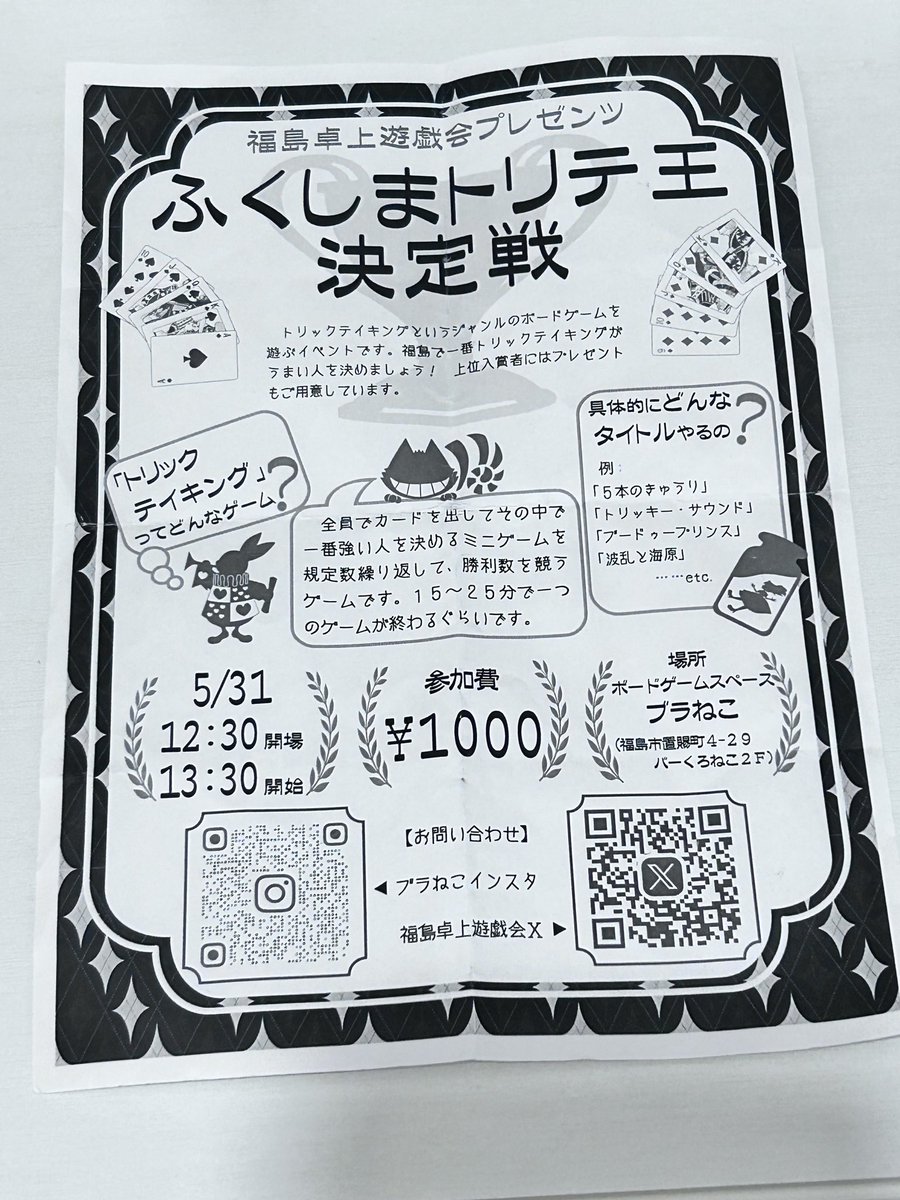 福島卓上遊戯会プレゼンツ
ふくしまトリテ王
決定戦
トリックテイキングというジャンルのボードゲームを
遊ぶイベントです。福島で一番トリックテイキングが
うまい人を決めましょう！ 上位入賞者にはプレゼント
もご用意しています。
「トリック
テイキング」
ってどんなゲーム？
全員でカードを出してその中で
一番強い人を決めるミニゲームを
規定数繰り返して、勝利数を競う
ゲームです。１５～２５分で一つ
のゲームが終わるぐらいです。
具体的にどんな
タイトルやるの？
例：
「５本のきゅうり」
「トリッキー・サウンド」
「ブードゥープリンス」
「波乱と海原」
……etc.
5/31
12:30 開場
13:30 開始
参加費
¥1000
場所
ボードゲームスペース
ブラねこ
(福島市置賜町4-29
バーくろねこ2F)
【お問い合わせ】
◀ ブラねこインスタ
福島卓上遊戯会X ▶